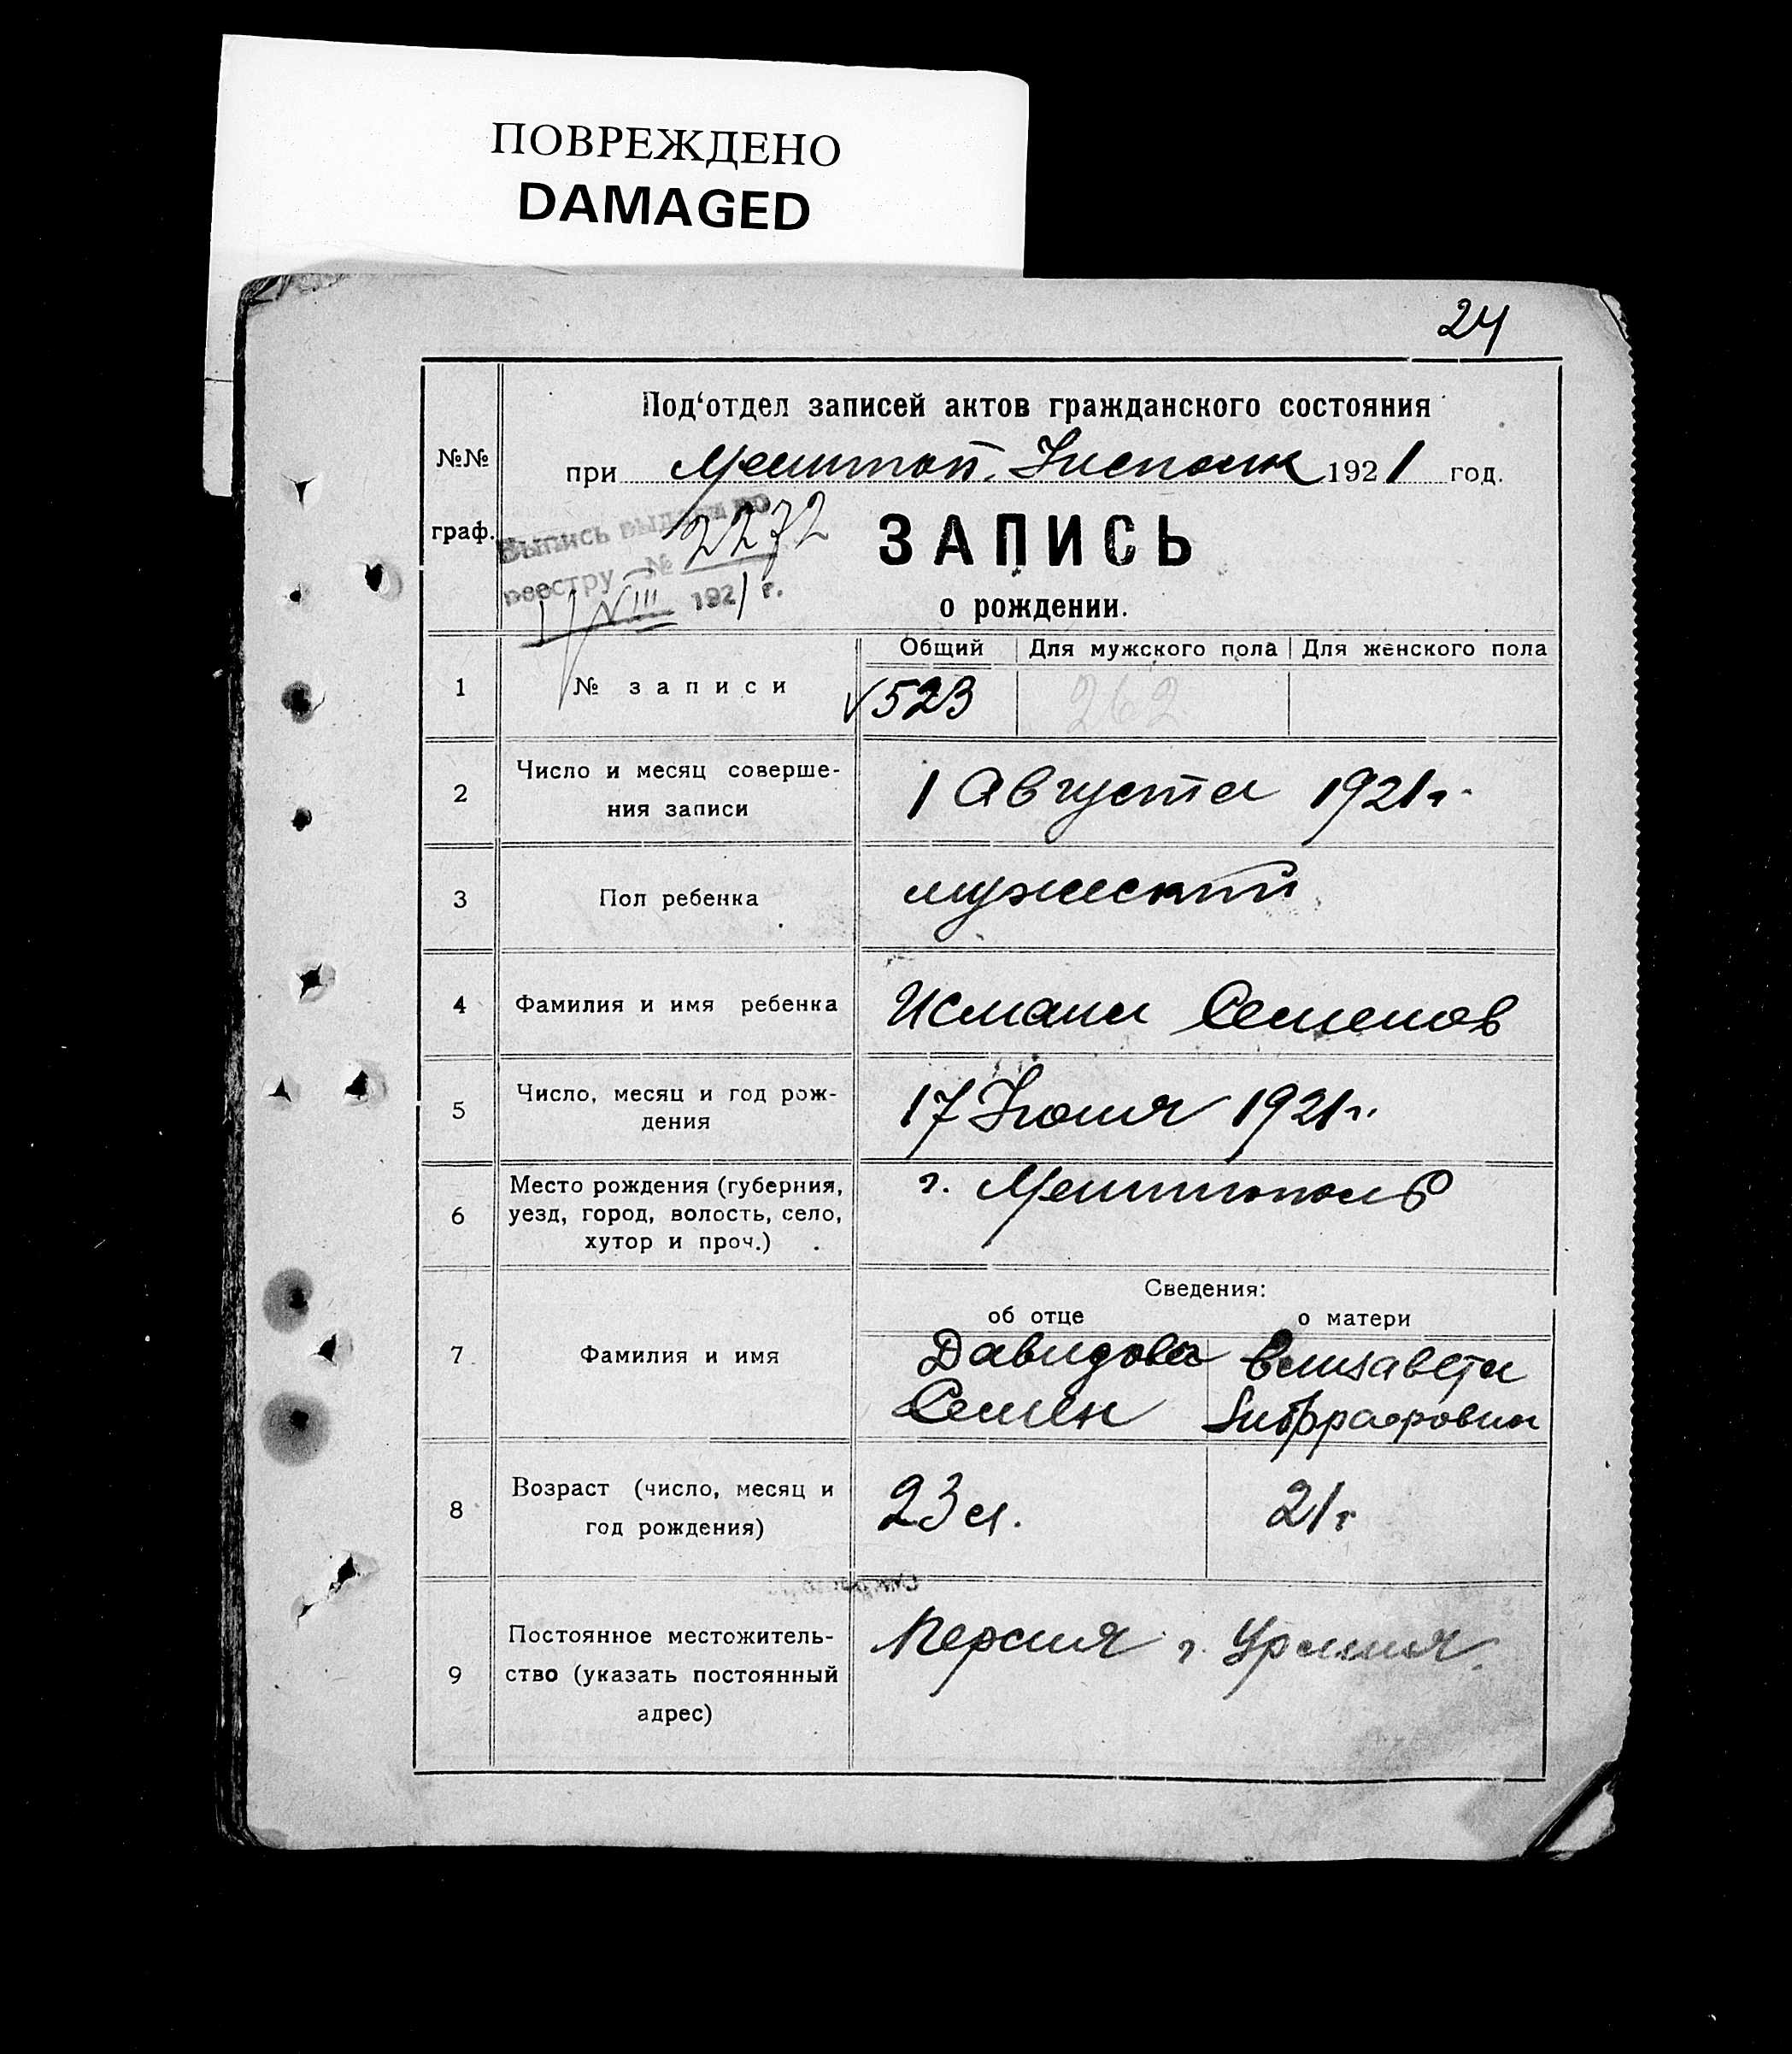 ПОВРЕЖДЕНО
DAMAGED
24
Под‘отдел записей актов гражданского состояния
№№
при Мелитоп. Исполк 1921 год.
граф.
Выпись выдана по
реестру № 2272
1/VIII 1921 г.
ЗАПИСЬ
о рождении.
Общий Для мужского пола Для женского пола
1 № записи 523 262
2 Число и месяц соверше-
ния записи
1 Августа 1921 г.
3 Пол ребенка мужеский
4 Фамилия и имя ребенка Исмаил Семенов
5 Число, месяц и год рож-
дения
17 Июля 1921 г.
6 Место рождения (губерния,
уезд, город, волость, село,
хутор и проч.)
г. Мелитополь
Сведения:
об отце о матери
7 Фамилия и имя
Давидова Елизавета
Семен
8 Возраст (число, месяц и
год рождения)
23 л. 21 г
9 Постоянное местожитель-
ство (указать постоянный
адрес)
Персия г. Урмия